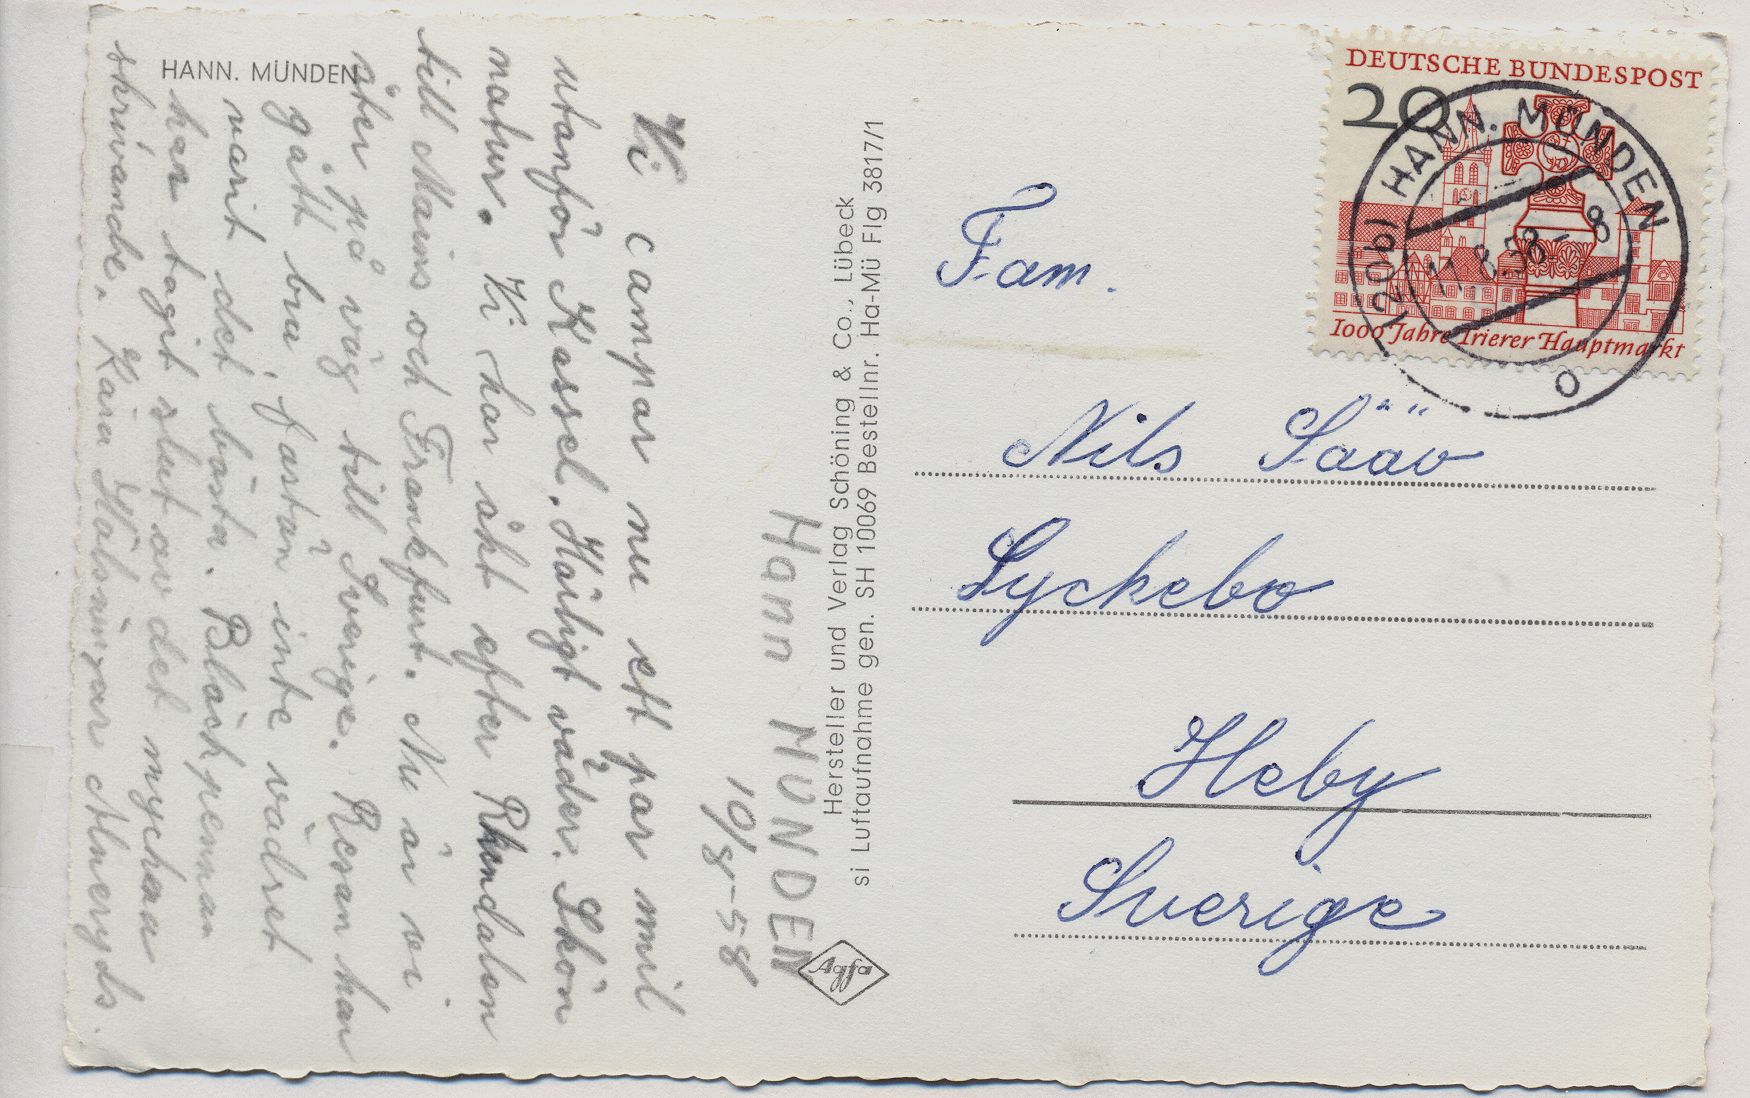 HANN. MÜNDEN
Hann MÜNDEN
10/8-58
Vi campar nu ett par mil
utanför Kassel. Härligt väder. Skön
natur. Vi har åkt efter Rhendalen
till Mains och Frankfurt. Nu är vi
åter på väg till Sverige. Resan har
gått bra, fastän inte vädret
varit det bästa. Bläckpennan
har tagit slut av det myckna
skrivande. Kära Hälsningar Alneryds.
Hersteller und Verlag Schöning & Co., Lübeck
si Luftaufnahme gen. SH 10069 Bestellnr. Ha-Mü Flg 3817/1
Agfa
DEUTSCHE BUNDESPOST
20
1000 Jahre Trierer Hauptmarkt
(20b) HANN. MÜNDEN
11.8.58-8
o
Fam.
Nils Sääv
Lyckebo
Heby
Sverige